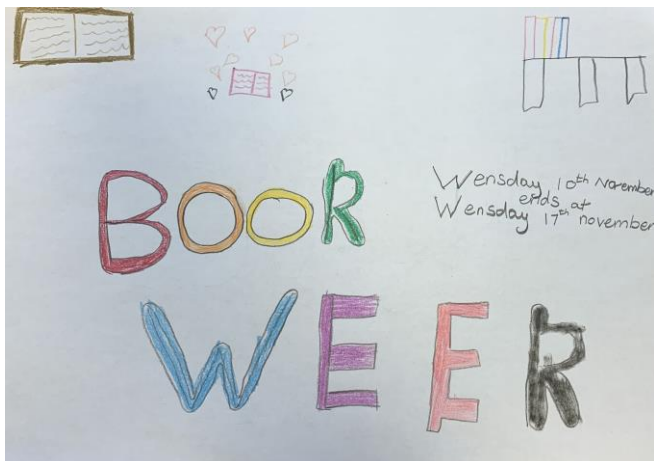 BOOK
Wensday 10th November
ends at
Wensday 17th november
WEEK